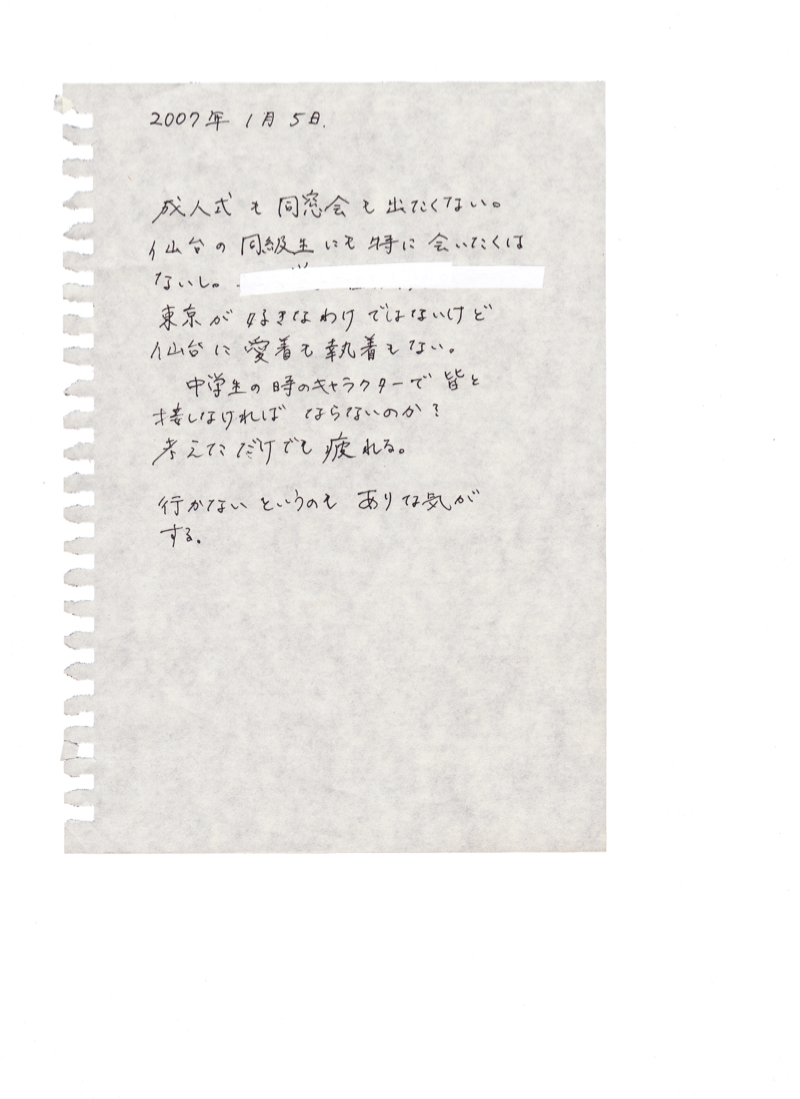 2007年 1月 5日.
成人式も同窓会も出たくない。
仙台の同級生にも特に会いたくは
ないし。
東京が好きなわけではないけど
仙台に愛着も執着もない。
中学生の時のキャラクターで皆と
接しなければならないのか?
考えただけでも疲れる。
行かないというのもありな気が
する。